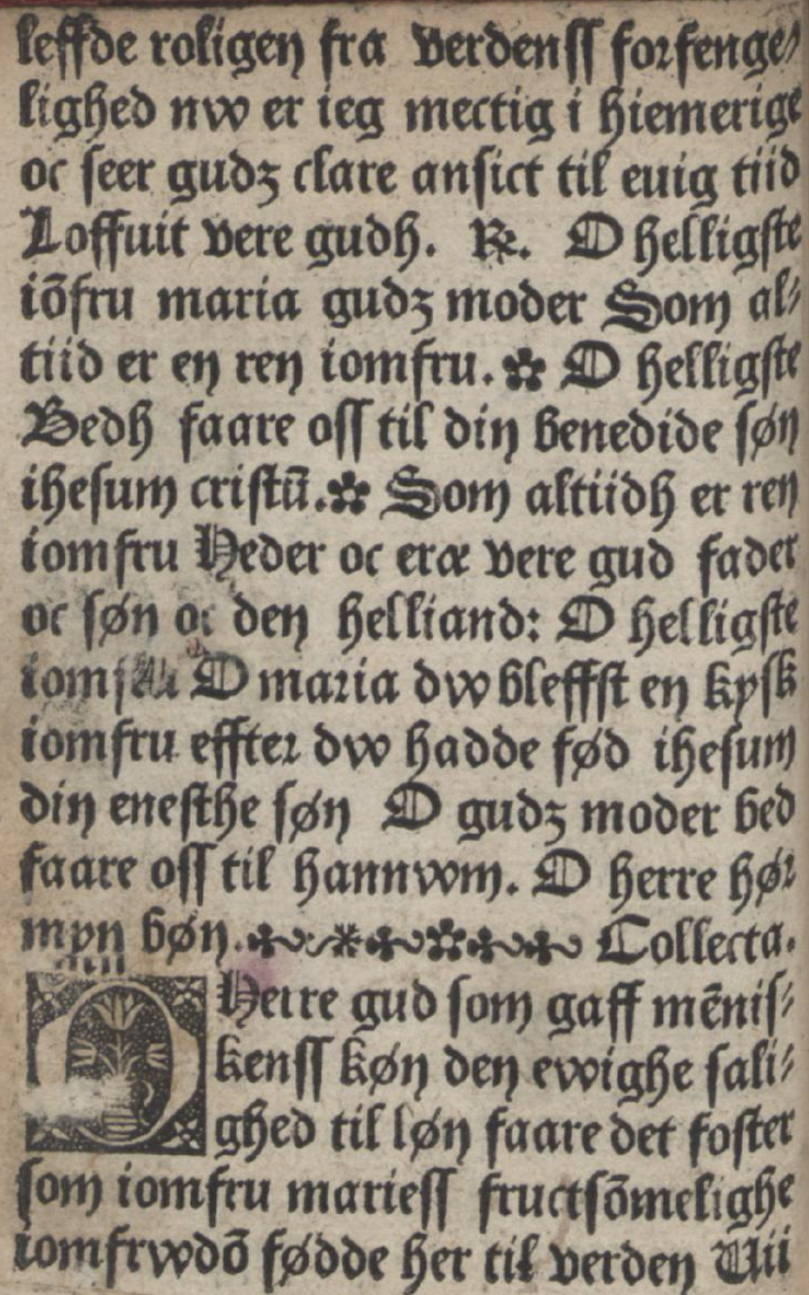 leffde roligen fra verdenss forfenge⸗
lighed nw er ieg mectig i hiemerige
oc seer gudz clare ansict til euig tiid
Loffuit vere gudh. ℟. O helligste
iōfru maria gudz moder Som al⸗
tiid er en ren iomfru. ✿ O helligste
Bedh faare oss til din benedide søn
ihesum cristū. ✿ Som altiidh er ren
iomfru Heder oc eræ vere gud fader
oc søn oc den helliand: O helligste
iomfru O maria dw bleffst en kysk
iomfru effter dw hadde fød ihesum
din enesthe søn O gudz moder bed
faare oss til hannwm. O herre hør
myn bøn. Collecta.
O Herre gud som gaff mēnis⸗
kenss køn den ewighe sali⸗
ghed til løn faare det foster
som iomfru mariess fructsōmelighe
iomfrwdō fødde her til verden Uii